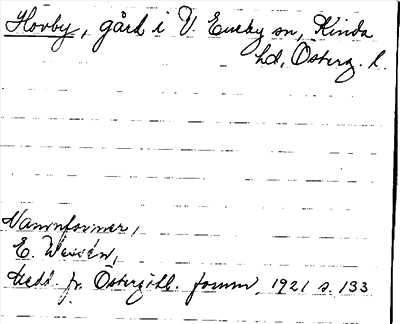 Hovby, gård i V. Eneby sn, Kinda
hd, Österg. l.
Namnformer,
E. Wessén,
Medd. fr. Östergötl. fornm. 1921 s. 133